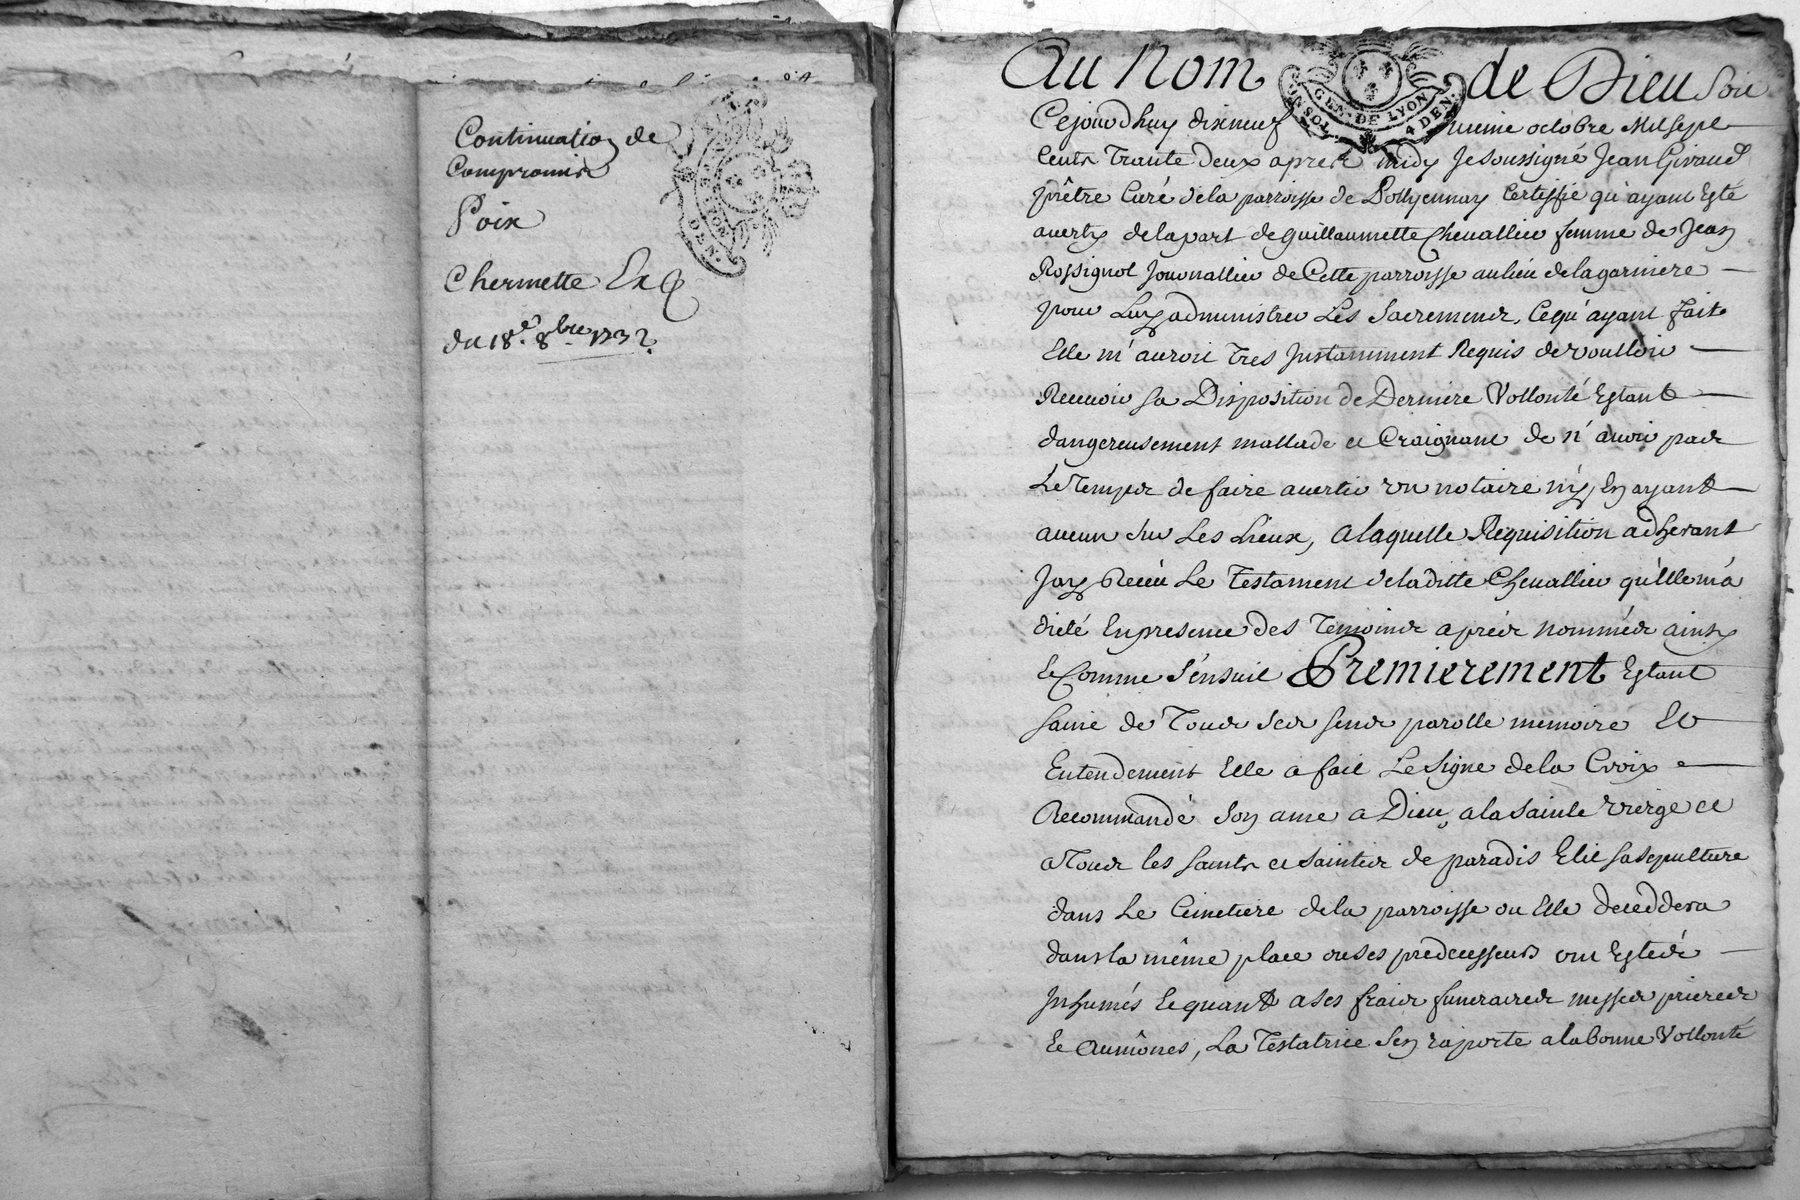 Continuation de
Compromis
Poix
Chermette
du 18.e 8.bre 1732
GEN. DE LYON
UN SOL 4 DEN.
Au Nom de Dieu soit
Cejourdhuy dixneufvieme octobre Mil sept
cents trante deux apres midy Je soussigné Jean Giraud
prêtre Curé dela parroisse de certiffie qu'ayant esté
averty delapart de guillaumette Chevallier femme de Jean
Rossignol Journallier de Cette parroisse aulieu delagarniere
pour Luy administrer Les Sacrements, Cequ'ayant fait
Elle m'auroit Tres Justamment Requis de voulloir
Recevoir sa Disposition de Derniere Vollonté Estant
dangereusement mallade et Craignant de n'avoir pas
Le Temps de faire avertir un notaire ny En ayant
aucun sur Les Lieux, alaquelle Requisition adherant
Jay Receu Le Testament deladitte Chevallier qu'Elle m'a
dicté En presence des Temoins aprés nommés ainsy
Et Comme S'ensuit Premierement Estant
saine de Tous ses sens parolle memoire Et
Entendement Elle a fait Le signe dela Croix
Recommandé son ame a Dieu, ala sainte vierge et
a Tous les saints et saintes de paradis Elit sa sepulture
dans Le Cimetiere dela parroisse ou Elle deceddera
dans la même place ou ses predecesseurs ont Estés
Inhumés Et quant a ses frais funeraires messes prieres
Et Aumônes, La Testatrice sen raporte ala bonne Vollonté